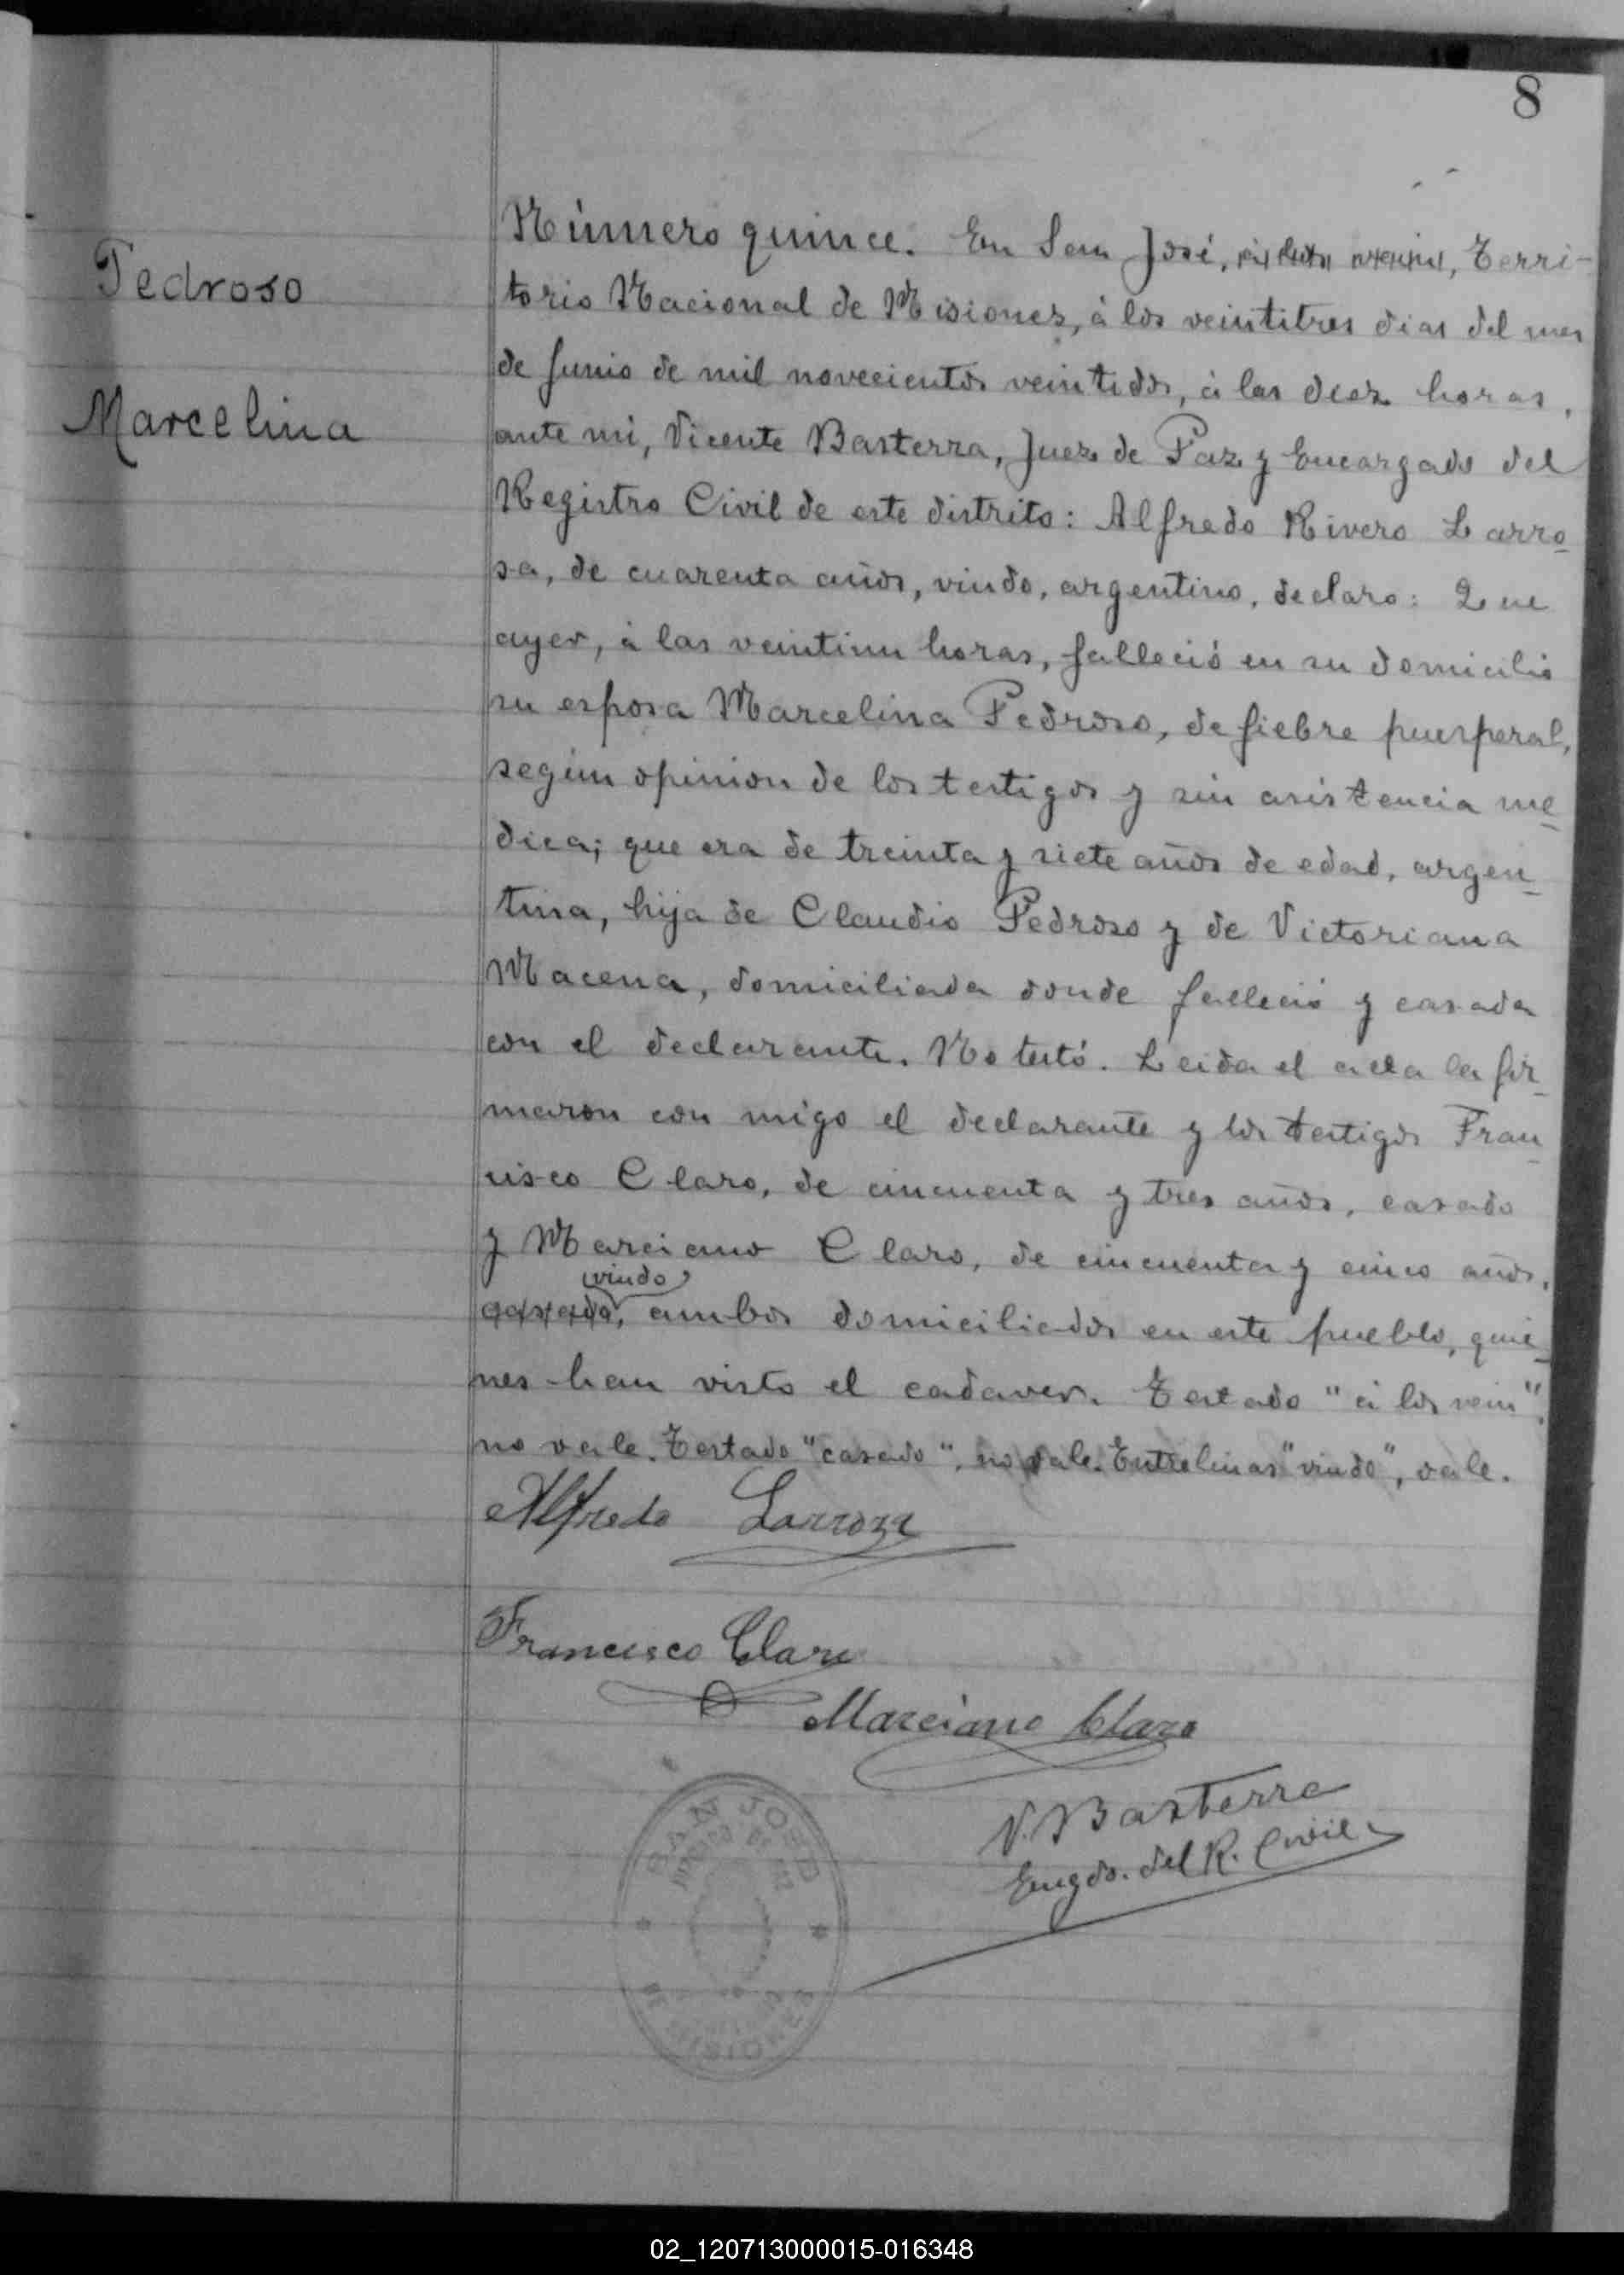 8
Pedroso
Marcelina
Número quince. En San José, Terri-
torio Nacional de Misiones, á los veintitres dias del mes
de Junio de mil novecientos veintidos, á las diez horas,
ante mi, Vicente Basterra, Juez de Paz y Encargado del
Registro Civil de este distrito: Alfredo Rivero Larro-
sa, de cuarenta años, viudo, argentino, declaro: Que
ayer, á las veintiun horas, falleció en su domicilio
su esposa Marcelina Pedroso, de fiebre puerperal,
según opinion de los testigos y sin asistencia me-
dica; que era de treinta y siete años de edad, argen-
tina, hija de Claudio Pedroso y de Victoriana
Macena, domiciliada donde falleció y casada
con el declarante. No testó. Leida el acta la fir-
maron con migo el declarante y los testigos Fran-
cisco Claro, de cincuenta y tres años, casado
y Marciano Claro, de cincuenta y cinco años,
viudo
casado, ambos domiciliados en este pueblo, quie-
nes han visto el cadaver. Testado "á los vein",
no vale. Testado "casado", no vale. Entrelineas "viudo", vale.
Alfredo Larroza
Francisco Claro
Marciano Claro
V. Basterra
Engdo. del R. Civil
SAN JOSE
JUZGADO DE PAZ
MISIONES
02_120713000015-016348